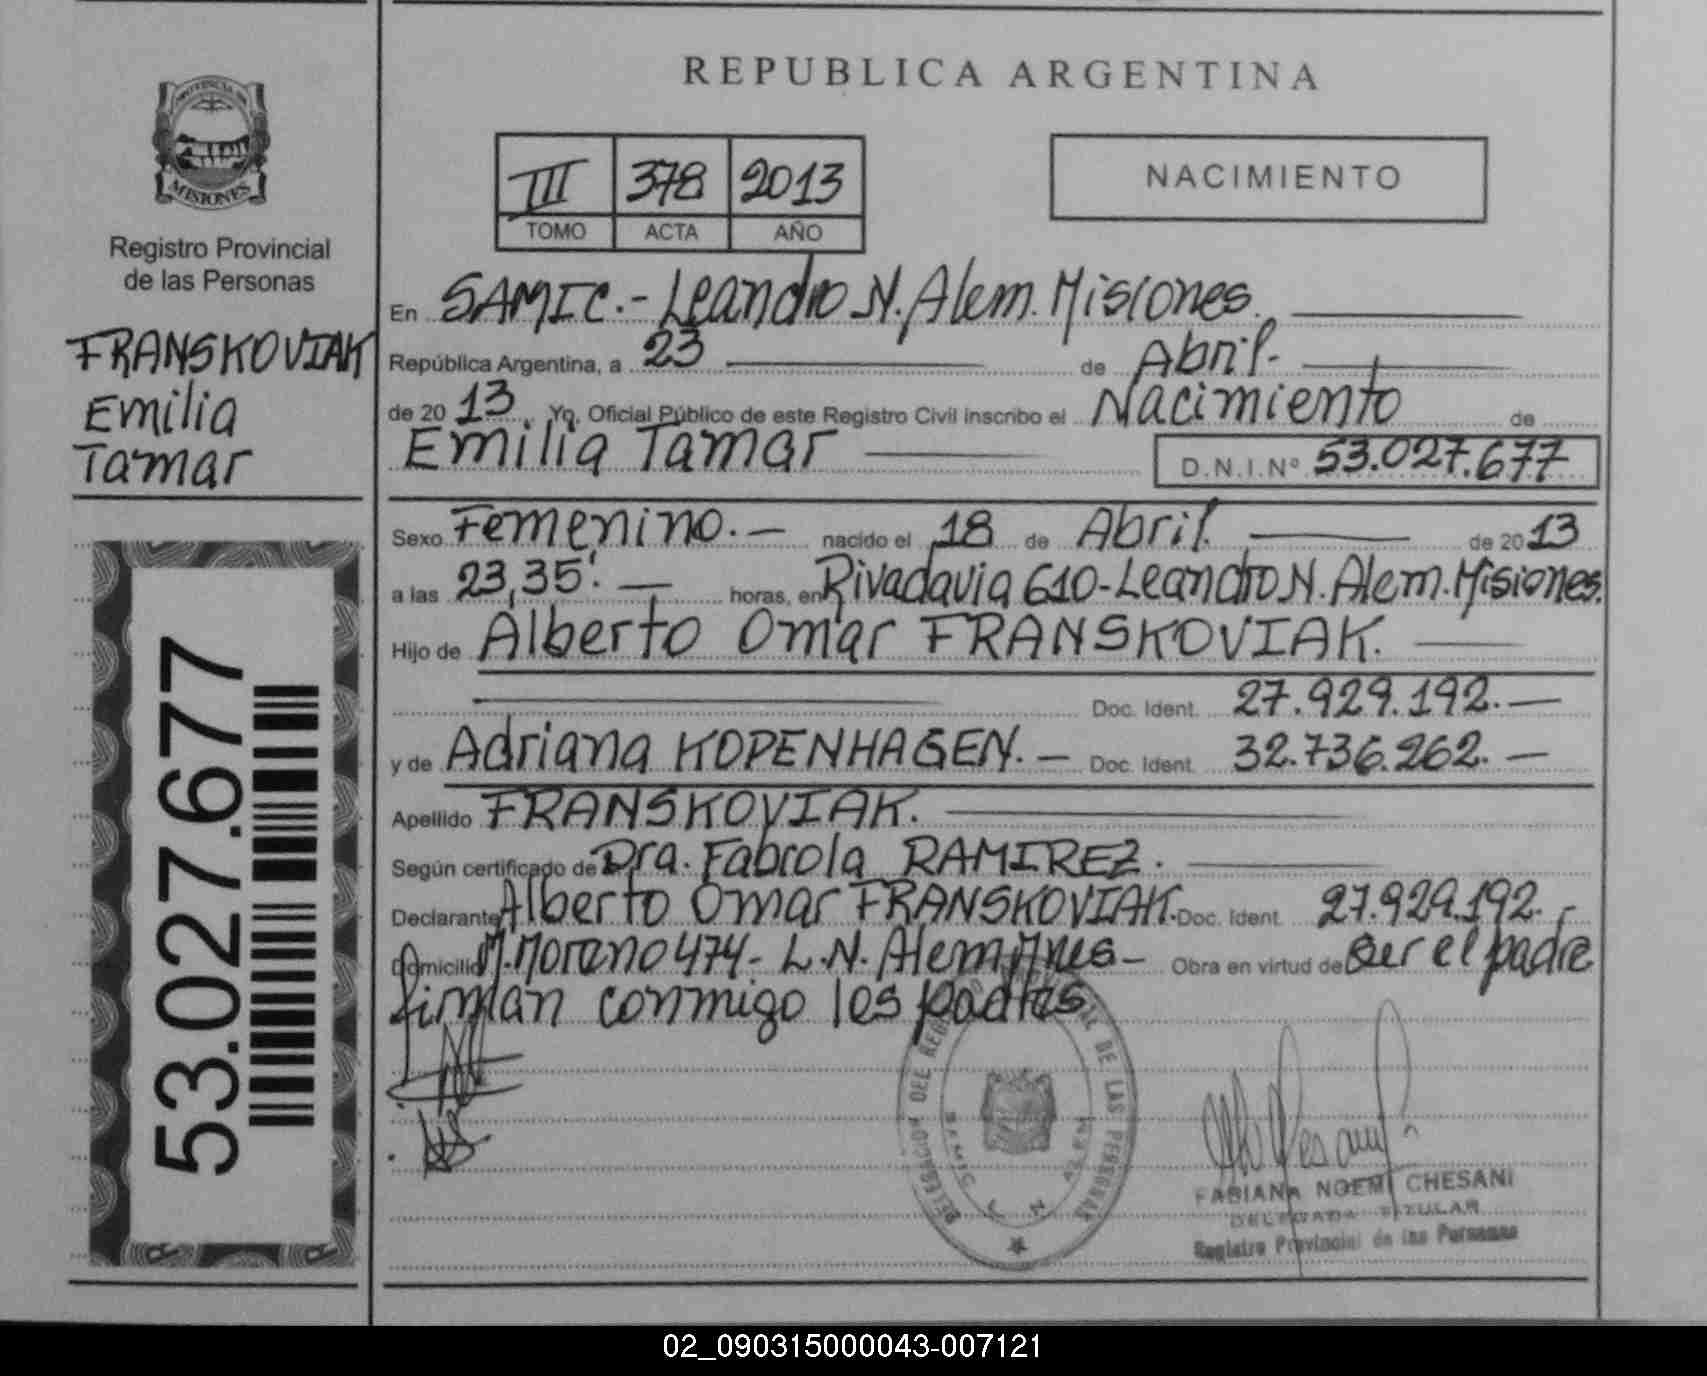 REPUBLICA ARGENTINA
PROVINCIA DE
MISIONES
Registro Provincial
de las Personas
III 378 2013
TOMO ACTA AÑO
NACIMIENTO
FRANSKOVIAK
Emilia
Tamar
53.027.677
En SAMIC.- Leandro N. Alem. Misiones.
República Argentina, a 23 de Abril.-
de 2013 Yo, Oficial Público de este Registro Civil inscribo el Nacimiento de
Emilia Tamar D.N.I. Nº 53.027.677
Sexo Femenino.- nacido el 18 de Abril. de 2013
a las 23,35'.- horas, en Rivadavia 610-Leandro N. Alem. Misiones.
Hijo de Alberto Omar FRANSKOVIAK.
Doc. Ident. 27.929.192.-
y de Adriana KOPENHAGEN.- Doc. Ident. 32.736.262.-
Apellido FRANSKOVIAK.
Según certificado de Dra. Fabiola RAMIREZ.
Declarante Alberto Omar FRANSKOVIAK. Doc. Ident. 27.929.192.-
Domicilio M. Moreno 474- L.N. Alem Mnes- Obra en virtud de Ser el padre
firman conmigo los padres
DELEGACION DEL DE LAS PERSONAS
SAMIC L N ALEM
FABIANA NOEMI CHESANI
DELEGADA TITULAR
Registro Provincial de las Personas
02_090315000043-007121